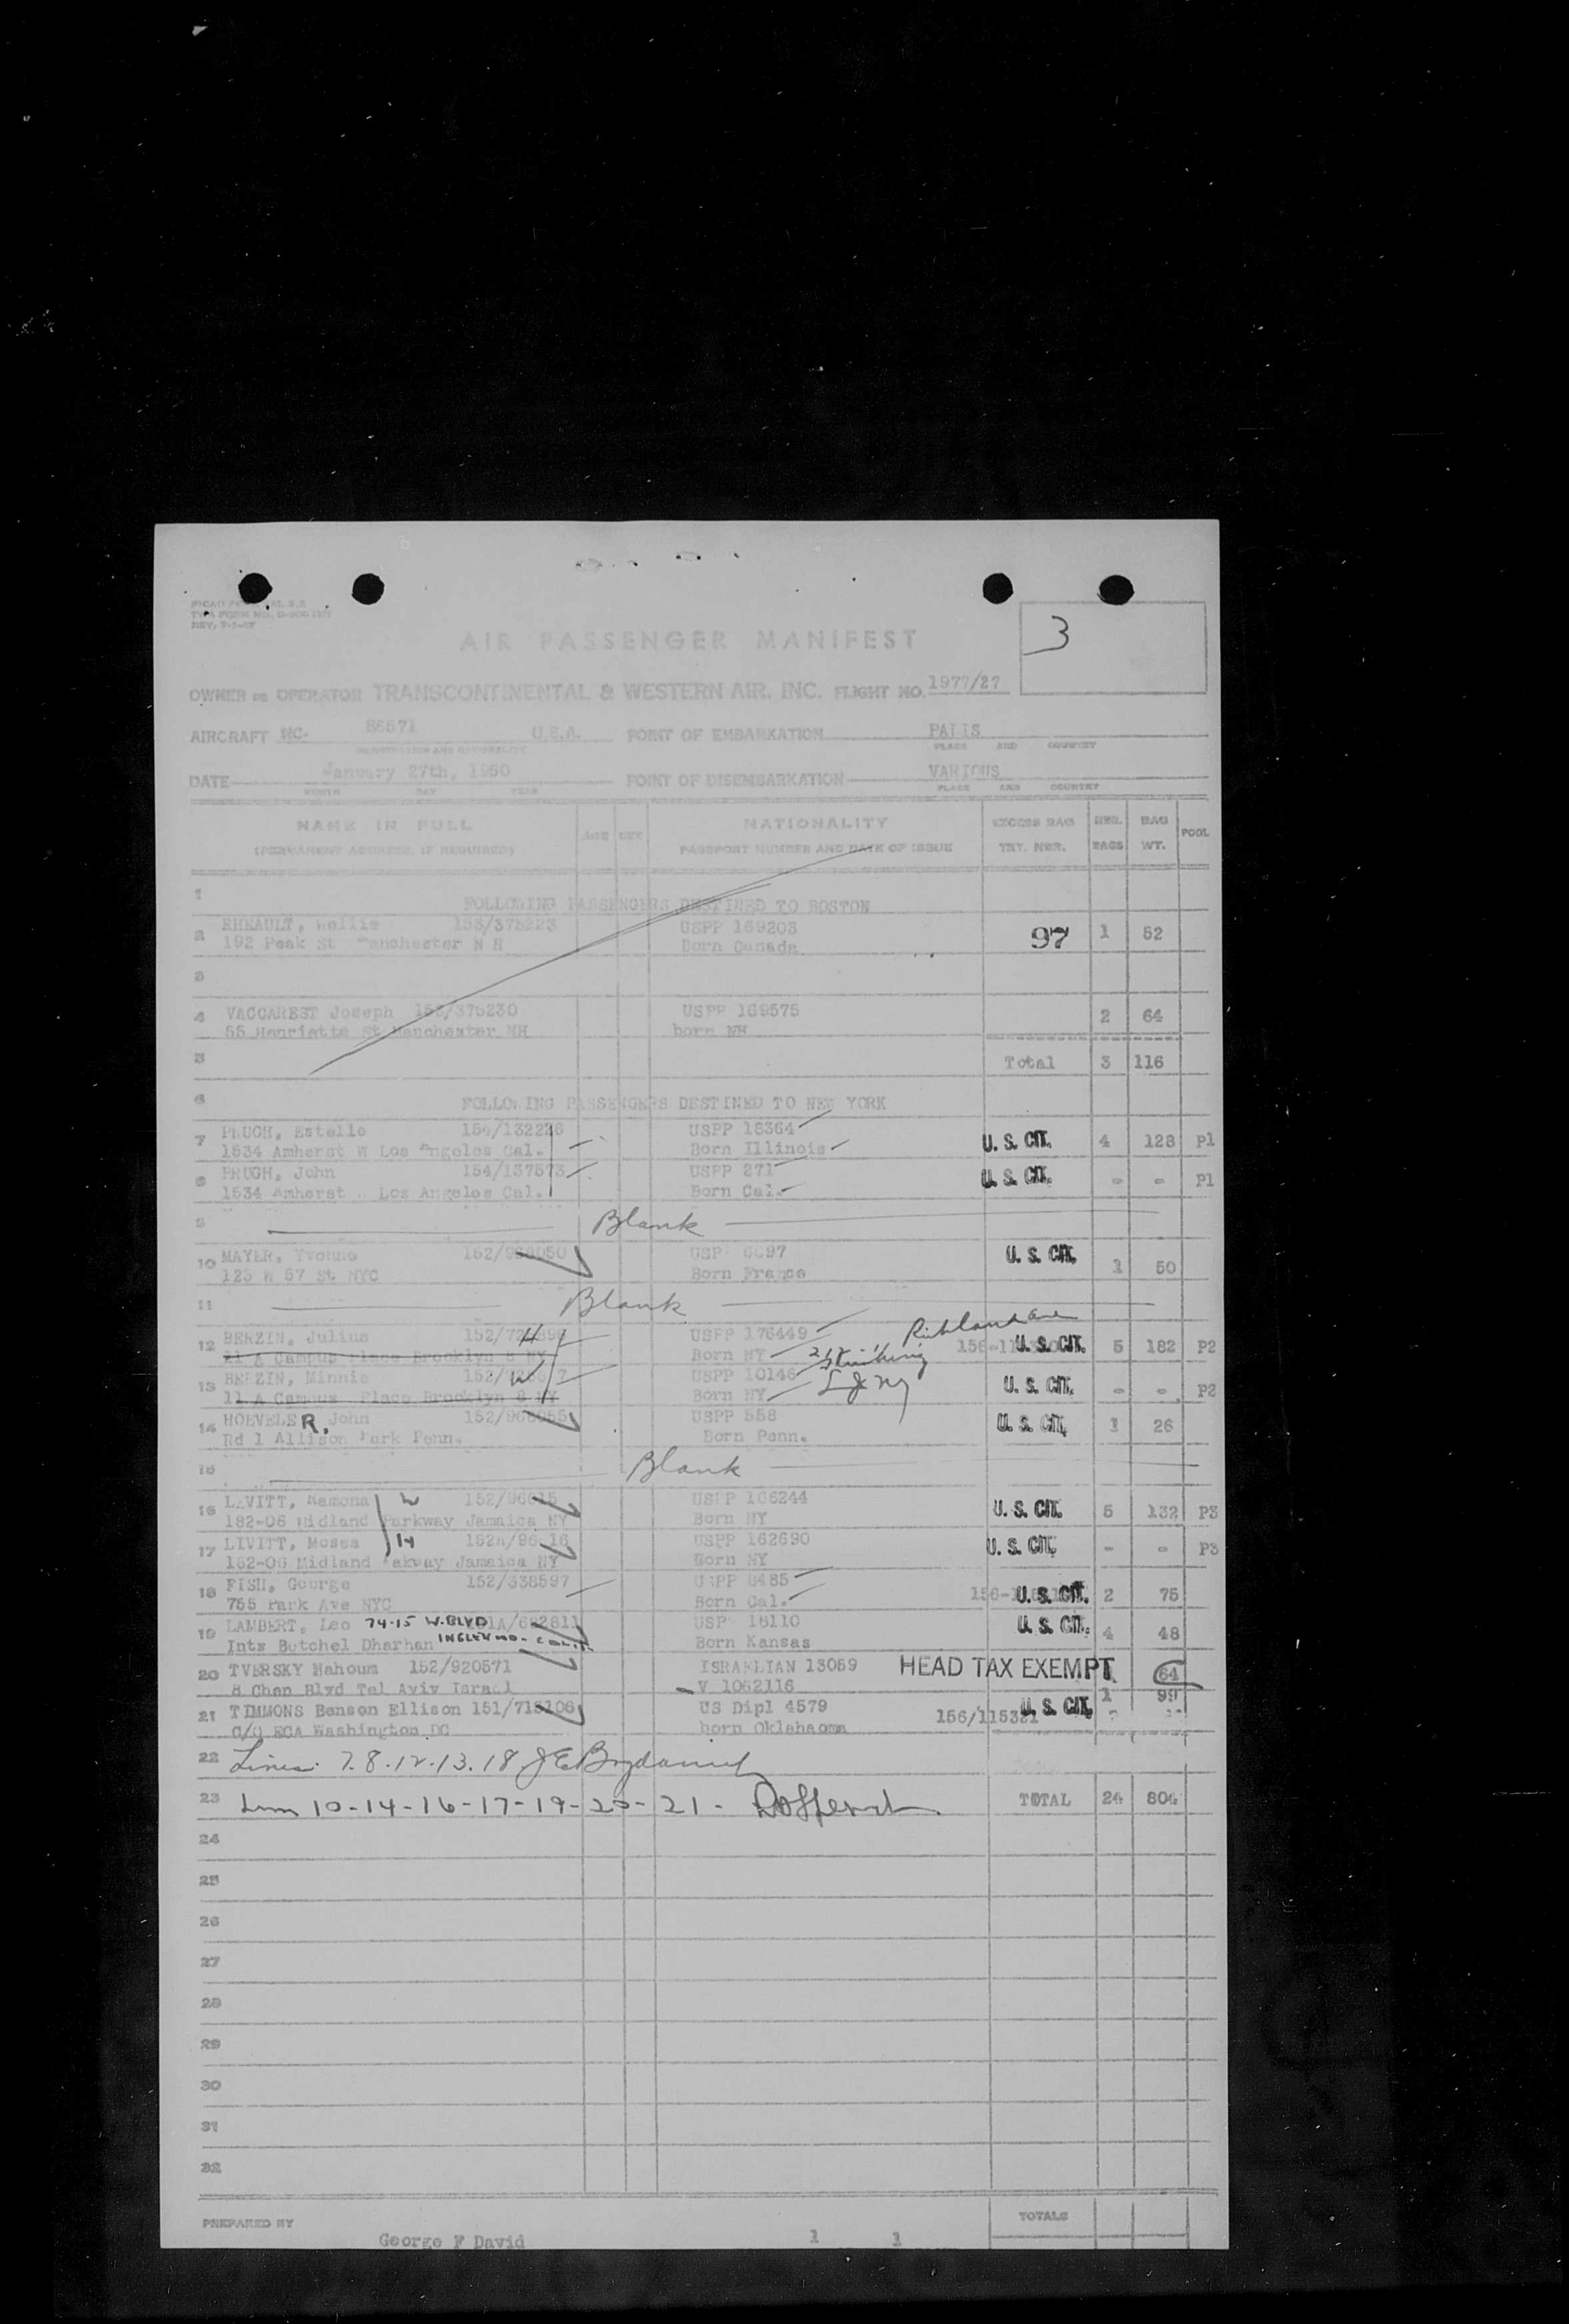 3
AIR PASSENGER MANIFEST
OWNER OR OPERATOR TRANSCONTINENTAL & WESTERN AIR. INC. FLIGHT NO. 1977/27
AIRCRAFT NC- 86571 U.S.A. POINT OF EMBARKATION PARIS
PLACE AND COUNTRY
DATE January 27th, 1950 POINT OF DISEMBARKATION VARIOUS
MONTH DAY YEAR PLACE AND COUNTRY
NAME IN FULL AGE SEX NATIONALITY EXCESS BAG NBR. BAG POOL
(PERMANENT ADDRESS, IF REQUIRED) PASSPORT NUMBER AND DATE OF ISSUE TKT. NBR. BAGS WT.
1
FOLLOWING PASSENGERS DESTINED TO BOSTON
2 RHEAULT, 153/375223 USPP 169203 97 1 52
192 Peak St Manchester N H Born Canada
3
4 VACCAREST Joseph 153/375230 USPP 169575 2 64
55 Henriette St Manchester NH born NH
5 Total 3 116
6 FOLLOWING PASSENGERS DESTINED TO NEW YORK
7 PRUGH, Estelle 154/132226 USPP 18364 U. S. CIT. 4 128 P1
1534 Amherst W Los Angeles Cal. Born Illinois
8 PRUGH, John 154/137573 USPP 271 U. S. CIT. - - P1
1534 Amherst . Los Angeles Cal. Born Cal.
9 Blank
10 MAYER, Yvonne 152/ U. S. CIT. 1 50
123 W 57 St NYC Born France
11 Blank
12 BERZIN, Julius 152/ H USPP 176449 Richland Ave U. S. CIT. 5 182 P2
11 A Campus Place Brooklyn 8 NY Born NY
13 BERZIN, Minnie 152/ W USPP 10146 U. S. CIT. - - P2
11 A Campus Place Brooklyn 8 NY Born NY
14 HOEVELER, John 152/ USPP 558 U. S. CIT. 1 26
Rd 1 Allison Park Penn. Born Penn.
15 Blank
16 LEVITT, Ramona W 152/ USPP 166244 U. S. CIT. 5 132 P3
182-06 Midland Parkway Jamaica NY Born NY
17 LIVITT, Moses H USPP 162690 U. S. CIT. - - P3
182-06 Midland Pakway Jamaica NY Born NY
18 FISH, George 152/338597 USPP 8485 U. S. CIT. 2 75
755 Park Ave NYC Born Cal.
19 LAMBERT, Leo 74-15 W. BLVD USPP 18110 U. S. CIT. 4 48
Intx Betchel Dharhan INGLEWOOD - CALIF. Born Kansas
20 TVERSKY Nahoum 152/920571 ISRAELIAN 13059 HEAD TAX EXEMPT 64
8 Chen Blvd Tel Aviv Israel V 1062116 1 99
21 TIMMONS Benson Ellison 151/718106 US Dipl 4579 156/115321 U. S. CIT.
C/O ECA Washington DC born Oklahaoma
22 Lines: 7.8.12.13.18
23 Lines 10-14-16-17-19-20-21- TOTAL 24 804
24
25
26
27
28
29
30
31
32
PREPARED BY George F David 1 1 TOTALS